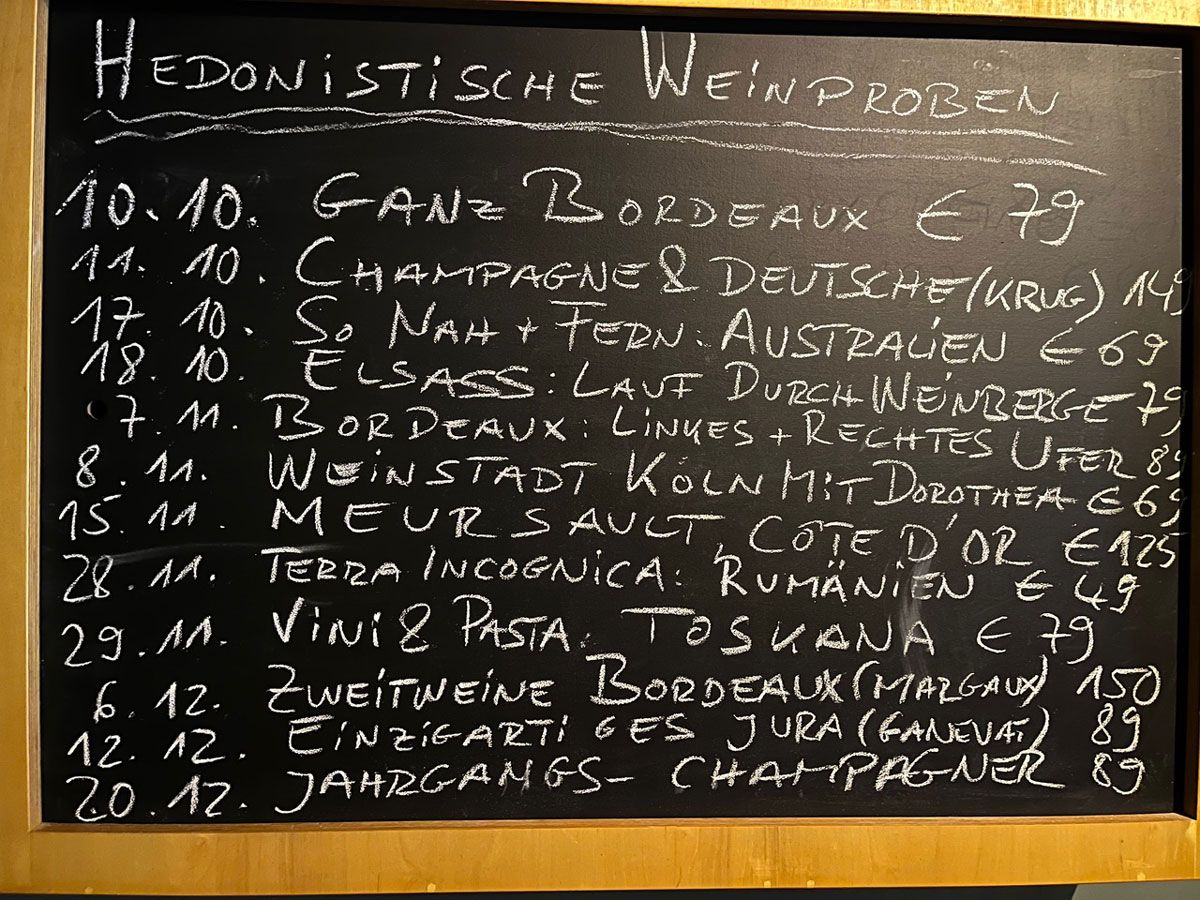 HEDONISTISCHE WEINPROBEN
10.10. GANZ BORDEAUX € 79
11. 10. CHAMPAGNE & DEUTSCHE (KRUG) 149
17. 10. SO NAH + FERN: AUSTRALIEN € 69
18. 10. ELSASS: LAUF DURCH WEINBERGE 79
7. 11. BORDEAUX: LINKES + RECHTES UFER 89
8. 11. WEINSTADT KÖLN MIT DOROTHEA € 69
15. 11. MEURSAULT, CÔTE D'OR € 125
28. 11. TERRA INCOGNICA: RUMÄNIEN € 49
29. 11. VINI & PASTA: TOSKANA € 79
6. 12. ZWEITWEINE BORDEAUX (MARGAUX) 150
12. 12. EINZIGARTIGES JURA (GANEVAT) 89
20. 12. JAHRGANGS- CHAMPAGNER 89